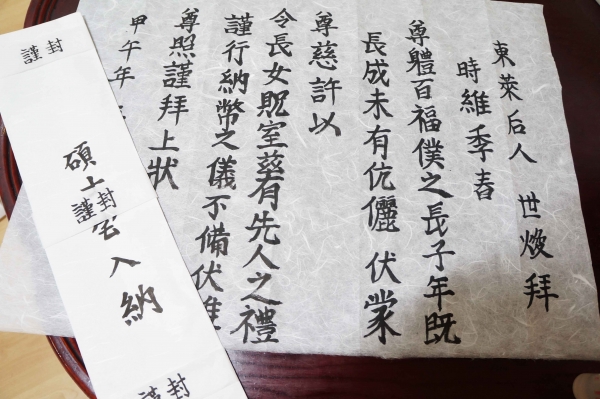 東萊后人 世煥拜
時維季春
尊體百福僕之長子年既
長成未有伉儷 伏蒙
尊慈許以
令長女貺室茲有先人之禮
謹行納幣之儀不備伏惟
尊照謹拜上狀
甲午年
謹封
碩士宅入納
謹封
謹封